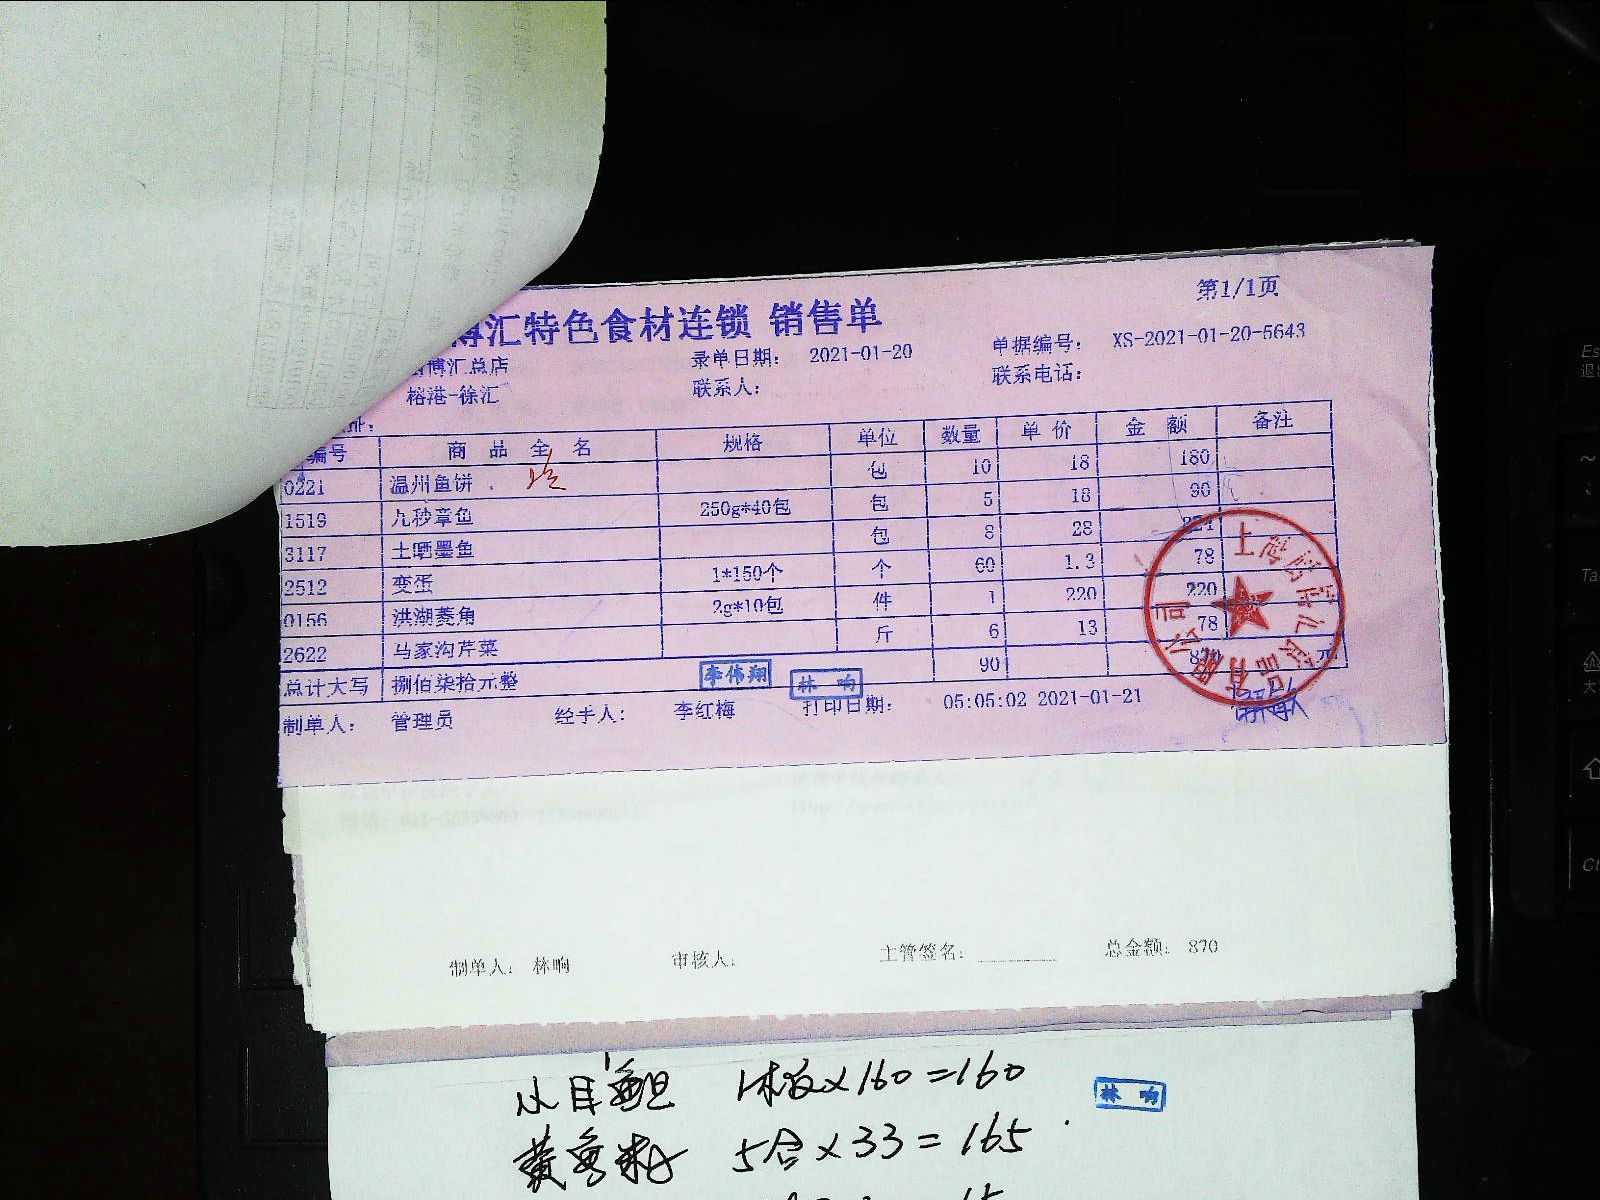 第1/1页
博汇特色食材连锁 销售单
博汇总店 录单日期： 2021-01-20 单据编号： XS-2021-01-20-5643
榕港-徐汇 联系人： 联系电话：
编号 商 品 全 名 规格 单位 数量 单 价 金 额 备注
0221 温州鱼饼 包 10 18 180
1519 九秒章鱼 250g*40包 包 5 18 90
3117 土晒墨鱼 包 8 28 224
2512 变蛋 1*150个 个 60 1.3 78
0156 洪湖菱角 2g*10包 件 1 220 220
2622 马家沟芹菜 斤 6 13 78
总计大写 捌佰柒拾元整 90 870 元
李伟翔 林 响
制单人： 管理员 经手人： 李红梅 打印日期： 05:05:02 2021-01-21
制单人： 林响 审核人： 主管签名： 总金额： 870
1板×160=160
林 响
5合×33=165